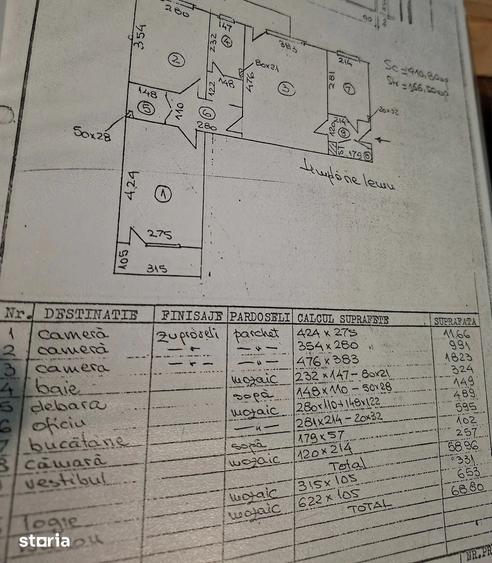 280
147
383
214
354
232
4
2
248
476
80x21
3
281
7
Sc = 410,80
148
5
110
122
6
280
20x32
214
120
9
57
179
8
50x28
tâmplărie lemn
424
1
275
105
315
Nr. DESTINATIE FINISAJE PARDOSELI CALCUL SUPRAFETE SUPRAFATA
1 cameră zugrăveli parchet 424 x 275 1166
2 cameră — " — — " — 354 x 280 991
3 cameră — " — — " — 476 x 383 1823
4 baie mozaic 232 x 147 - 80x21 324
5 debara sapă 148 x 110 - 50x28 149
6 oficiu mozaic 280x110+148x122 489
7 bucătărie — " — 281x214 - 20x32 595
8 cămară sapă 179 x 57 102
vestibul mozaic 120 x 214 257
Total 5896
logie mozaic 315 x 105 331
mozaic 622 x 105 653
TOTAL 6880
storia
NR.